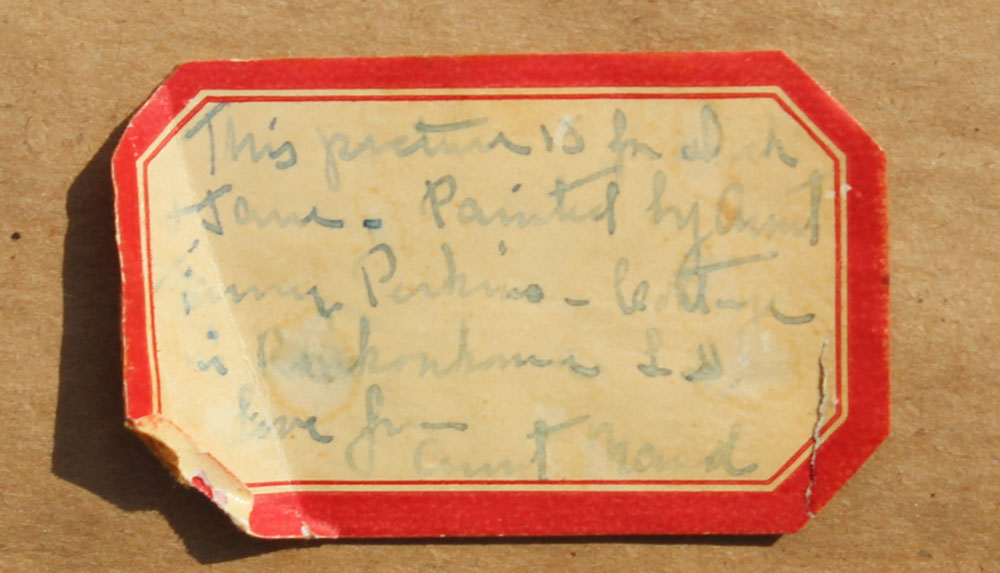 This picture is for Dick
+ Jane - Painted by Aunt
Perkins - Cottage
in Ronkonkoma L I,
love from
Aunt Maud